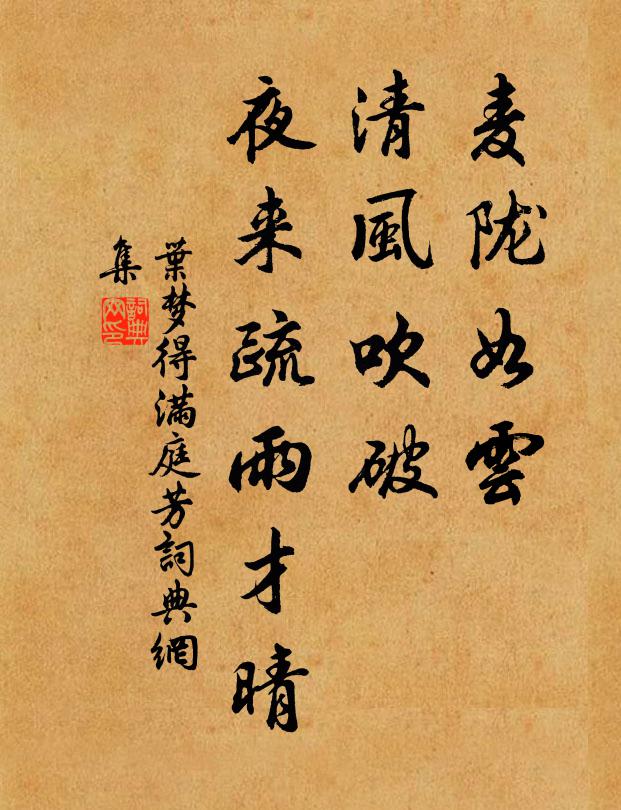 麦陇如雲
清風吹破
夜来疏雨才晴
葉梦得满庭芳詞典網
集
詞典網印